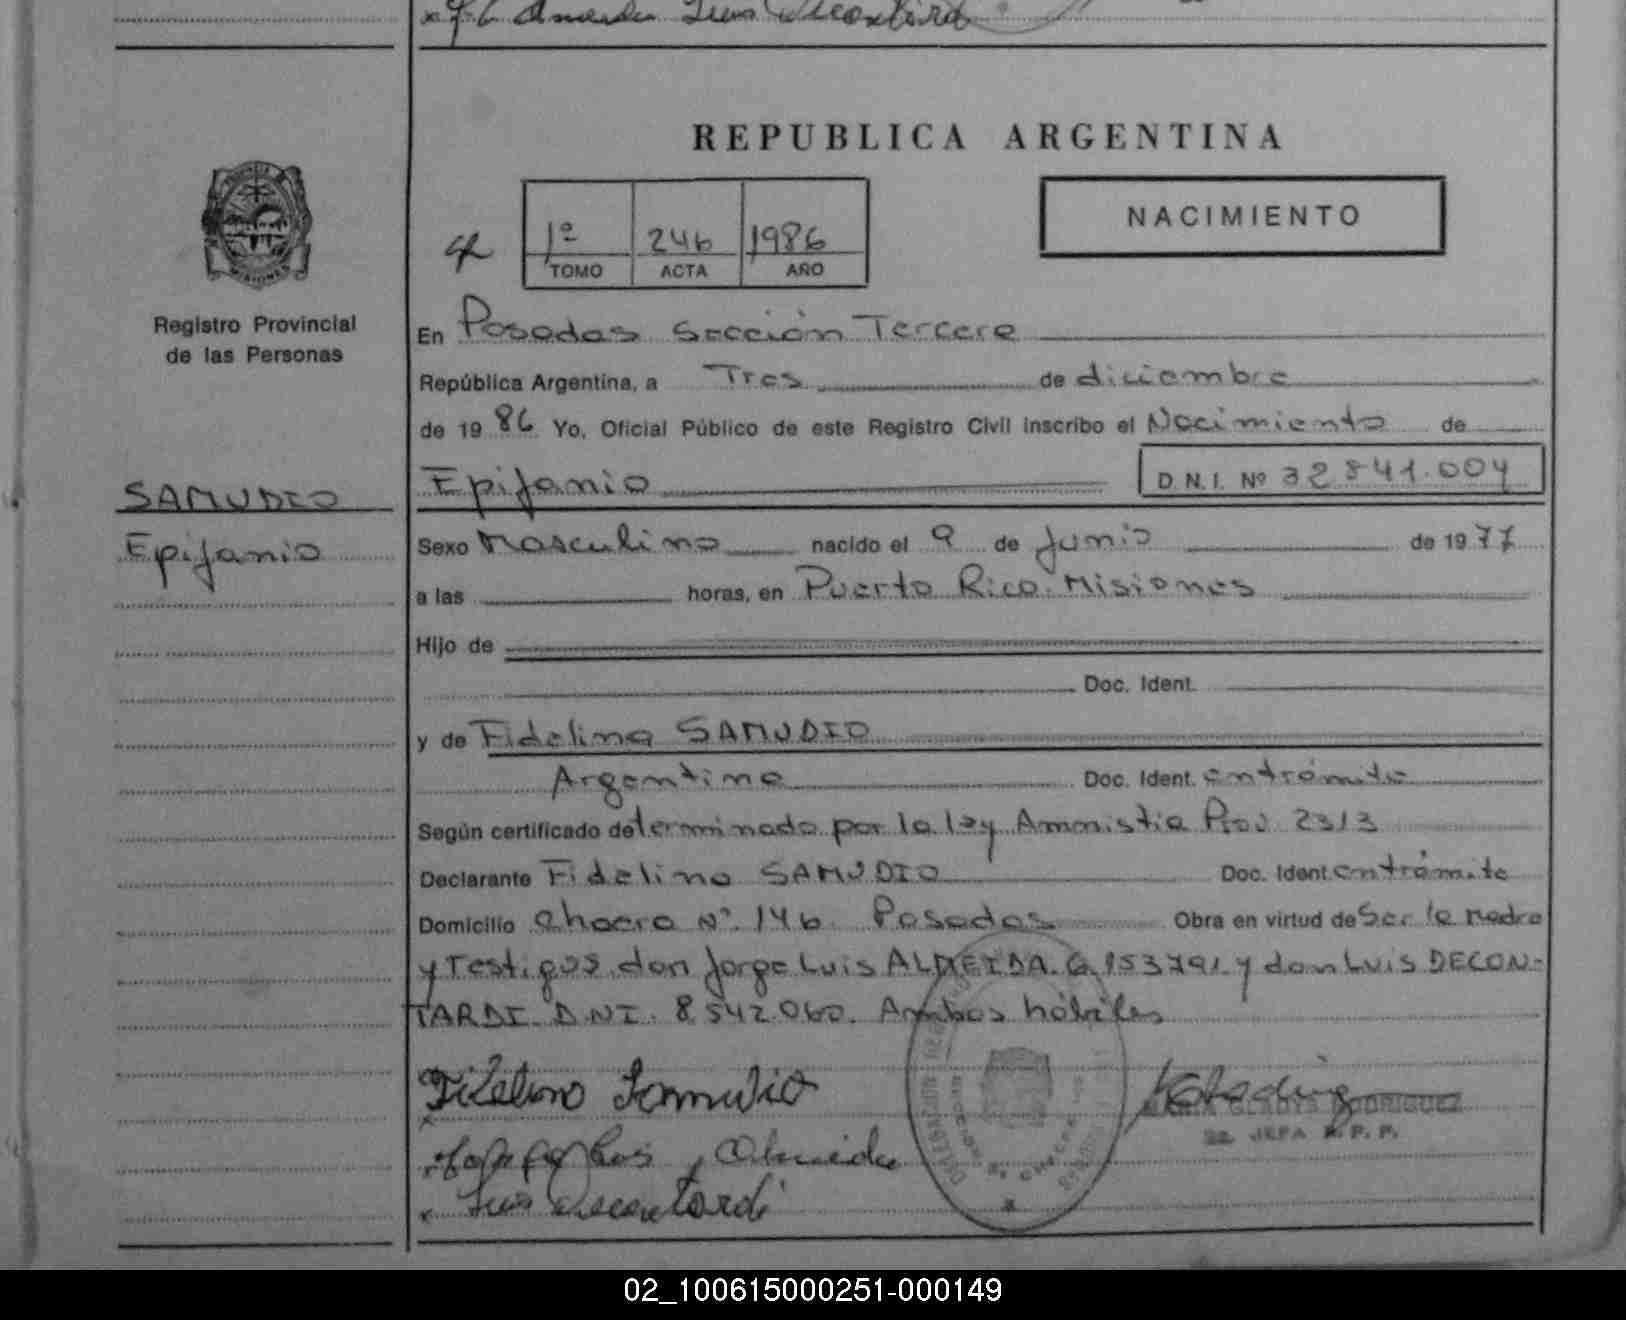 Luis Decontardi
REPUBLICA ARGENTINA
NACIMIENTO
1º 246 1986
TOMO ACTA AÑO
Registro Provincial
de las Personas
En Posadas Sección Tercera
República Argentina, a Tres de diciembre
de 1986 Yo, Oficial Público de este Registro Civil inscribo el Nacimiento de
Epifanio D.N.I. Nº 32.841.004
SAMUDIO
Epifanio
Sexo Masculino nacido el 9 de Junio de 1977
a las horas, en Puerto Rico. Misiones
Hijo de
Doc. Ident.
y de Fidelina SAMUDIO
Argentina Doc. Ident. entrámite
Según certificado determinado por la ley Amnistia Prov 2313
Declarante Fidelina SAMUDIO Doc. Ident. entrámite
Domicilio chacra Nº 146. Posadas Obra en virtud de Ser la Madre
y Testigos don Jorge Luis ALMEIDA. 6.153791 y don Luis DECON-
TARDI D.N.I. 8.542.060. Ambos hábiles
Fidelina Samudio
Luis Almeida
GLADYS RODRIGUEZ
JEFA R.P.P.
Luis Decontardi
02_100615000251-000149